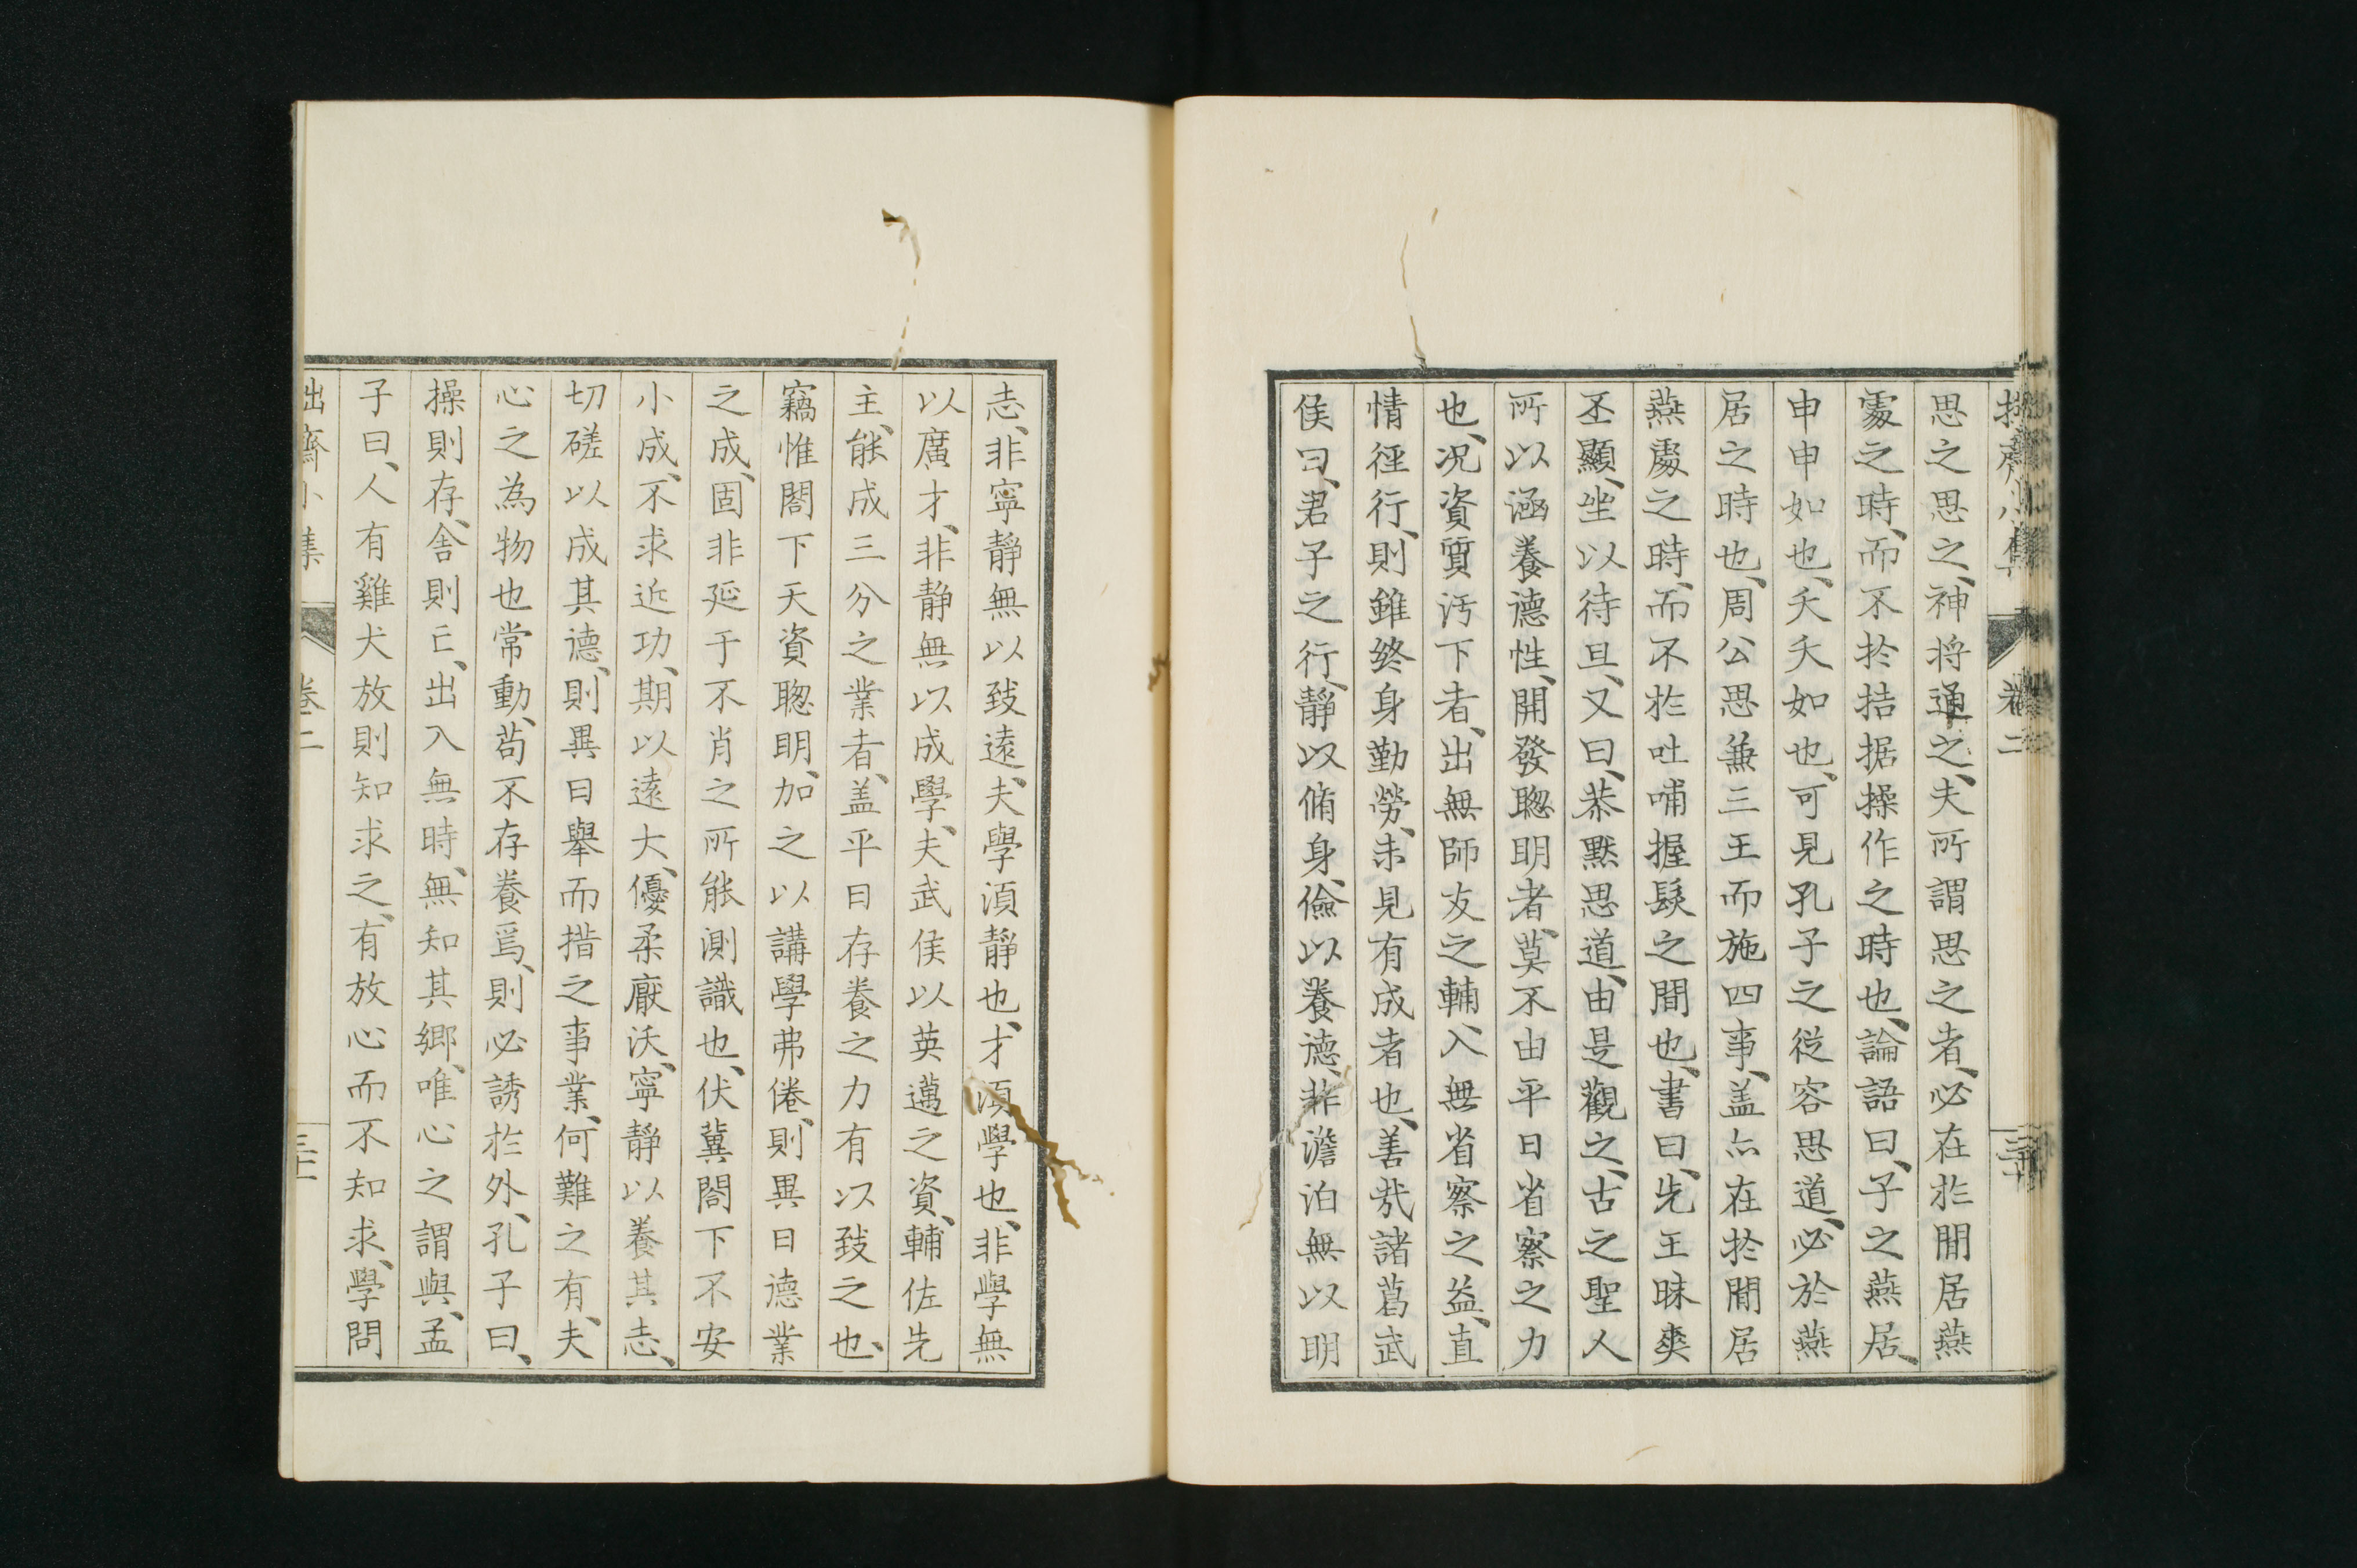 拙齋小集 卷二 三十
思之思之、神将通之、夫所謂思之者、必在於閒居燕
處之時、而不於拮据操作之時也、論語曰、子之燕居、
申申如也、夭夭如也、可見孔子之從容思道、必於燕
居之時也、周公思兼三王而施四事、盖亦在於閒居
燕處之時、而不於吐哺握髮之間也、書曰、先王昧爽
丕顯、坐以待旦、又曰、恭默思道、由是觀之、古之聖人
所以涵養德性、開發聰明者、莫不由平日省察之力
也、况資質汚下者、出無師友之輔、入無省察之益、直
情徑行、則雖終身勤勞、未見有成者也、善哉諸葛武
侯曰、君子之行、靜以脩身、儉以養德、非澹泊無以明
志、非寧靜無以致遠、夫學須靜也、才須學也、非學無
以廣才、非靜無以成學、夫武侯以英邁之資、輔佐先
主、能成三分之業者、盖平日存養之力有以致之也、
竊惟閤下天資聰明、加之以講學弗倦、則異日德業
之成、固非延于不肖之所能測識也、伏冀閤下不安
小成、不求近功、期以遠大、優柔厭沃、寧靜以養其志、
切磋以成其德、則異日舉而措之事業、何難之有、夫
心之為物也常動、苟不存養焉、則必誘於外、孔子曰、
操則存、舍則亡、出入無時、無知其鄉、唯心之謂與、孟
子曰、人有雞犬放則知求之、有放心而不知求、學問
拙齋小集 卷二